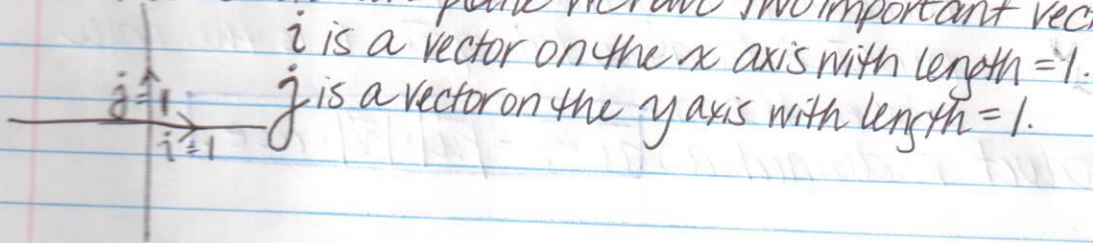 plane there are two important vec
i is a vector on the x axis with length = 1.
j is a vector on the y axis with length = 1.
j=1
i=1